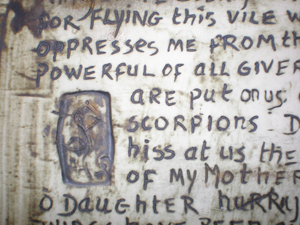 FOR FLYING this VILE
OPPRESSES ME FROM th
POWERFUL OF ALL GIVER
ARE PUT ON US
SCORPIONS. D
hiss at us the
OF MY MOTHER
O DAUGHTER hURRY